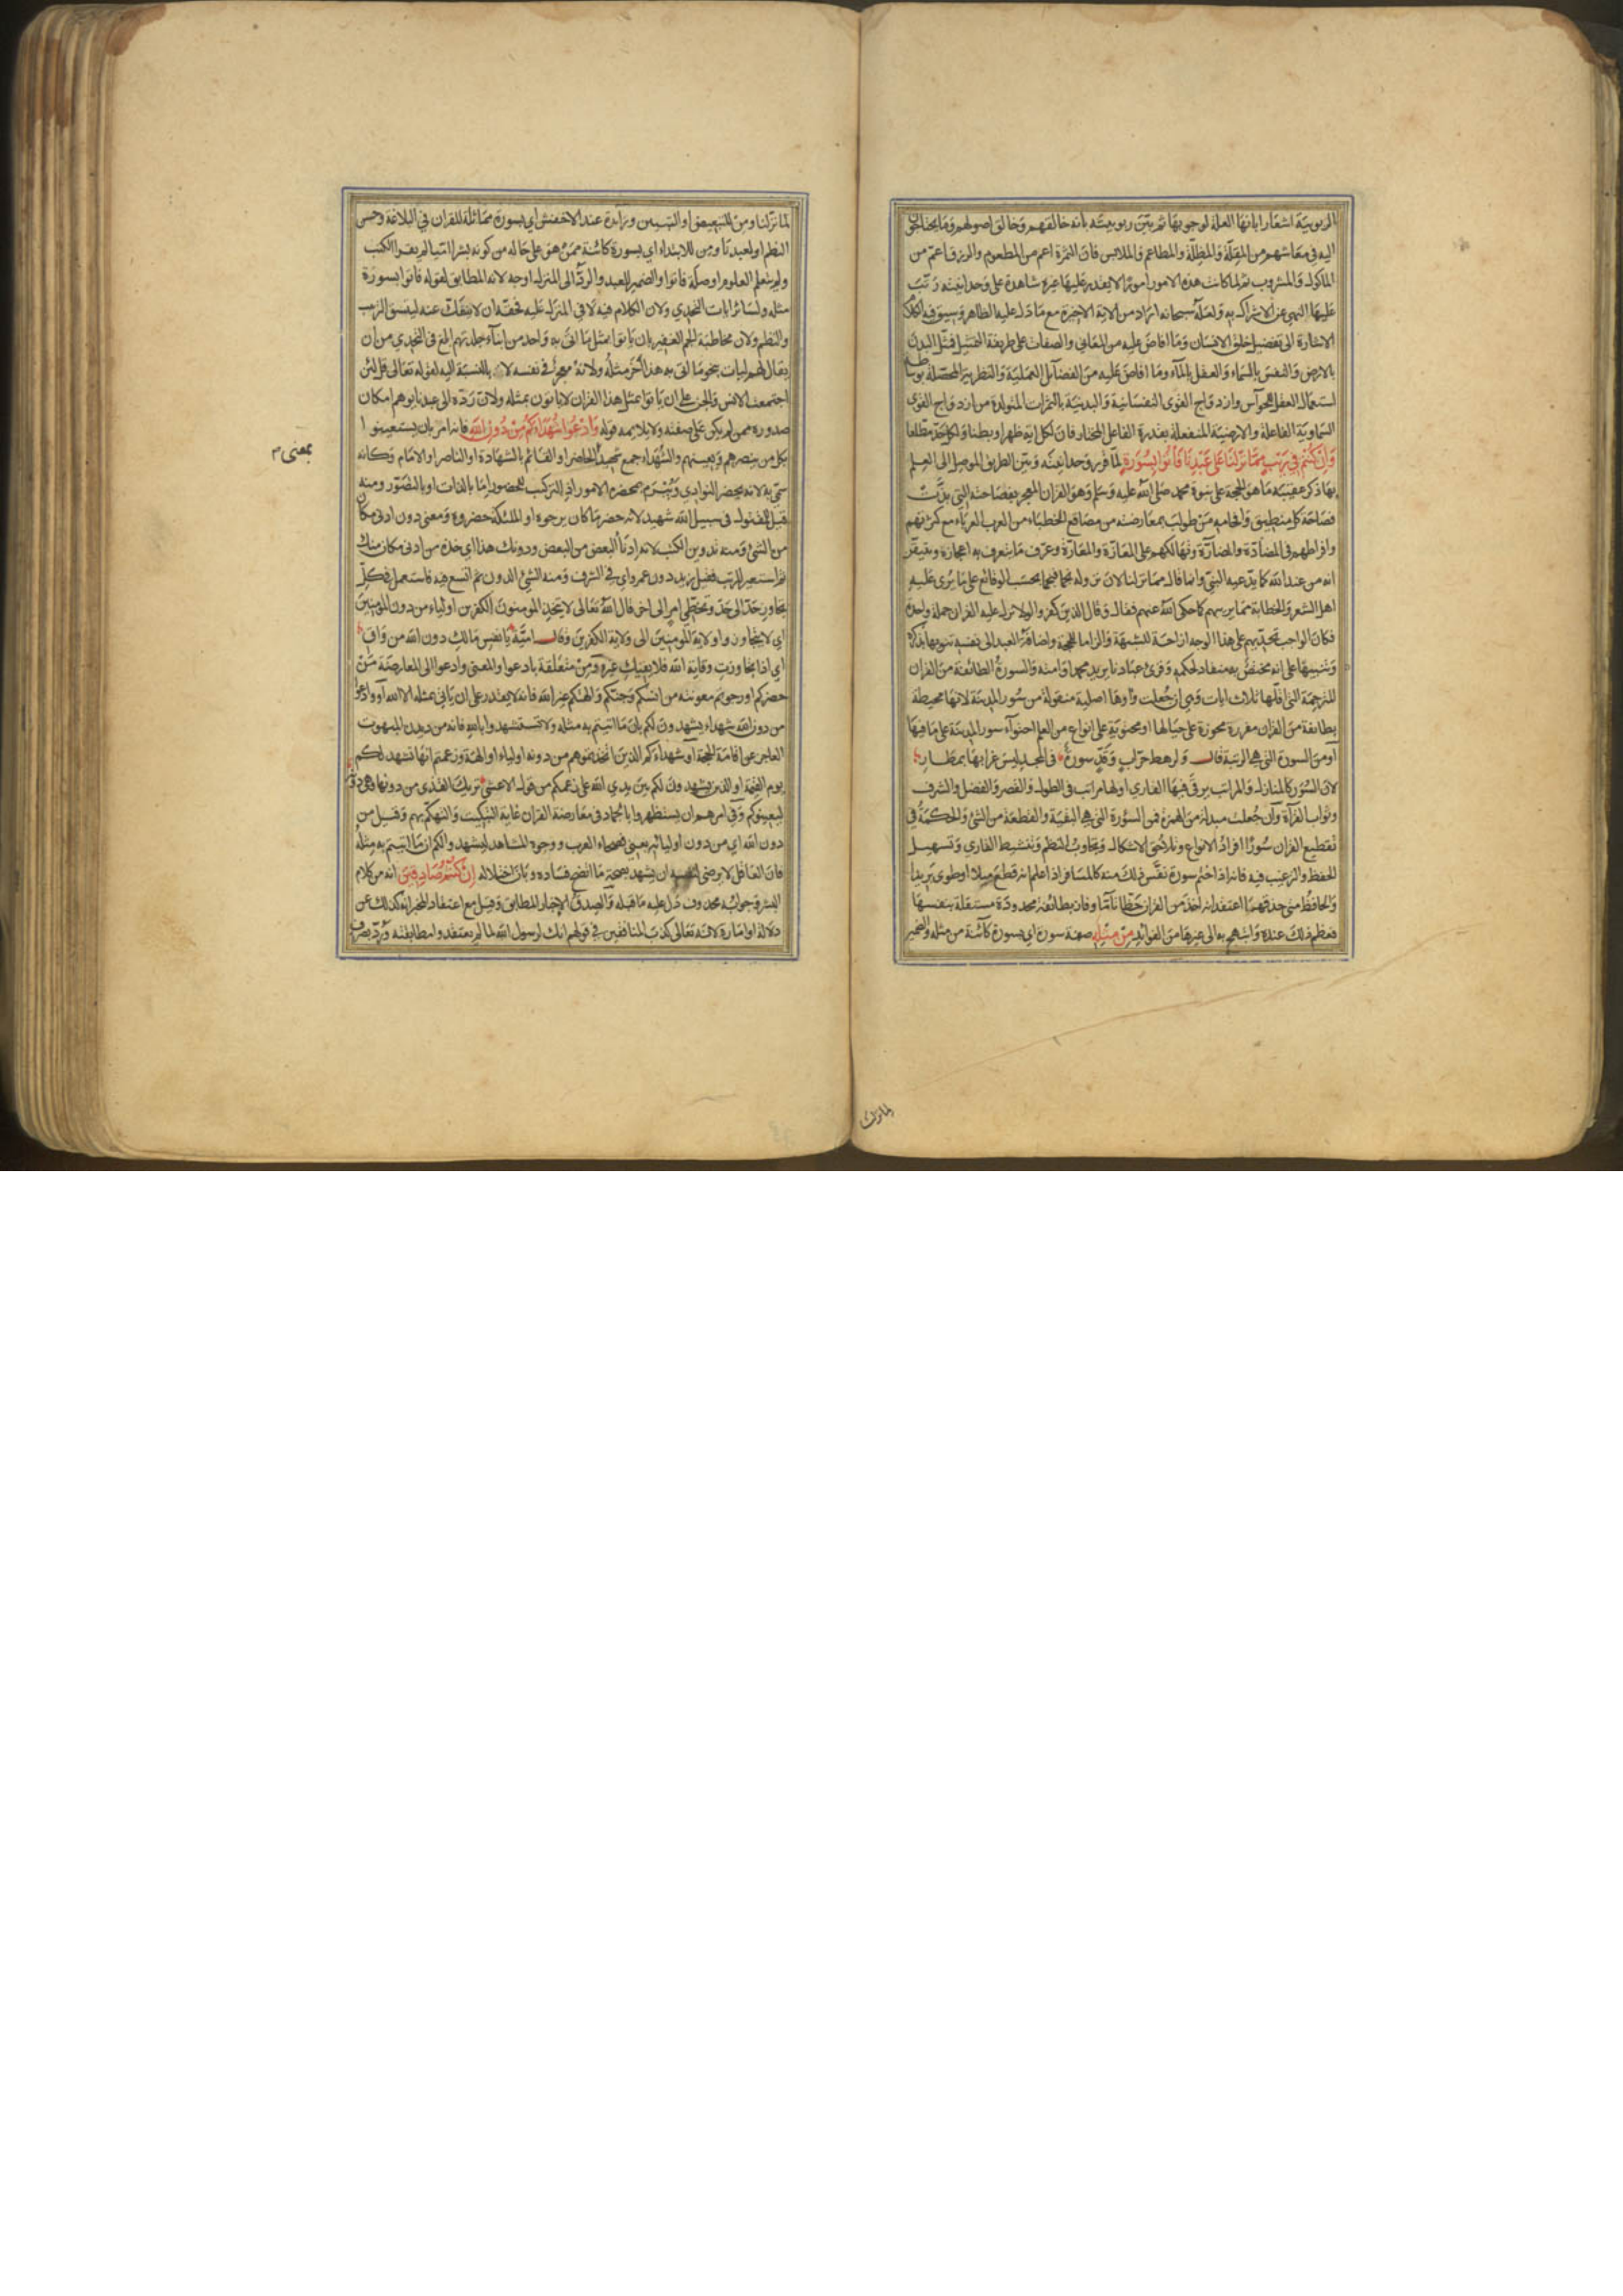 الربوبية اشعارا بانها العلة لوجوبها ثم بيّن ربوبيته بانه خالقهم وخالق اصولهم وما يحتاجون
اليه في معاشهم من المقلّة والمظلّة والمطاعم والملابس فان الثمرة اعم من المطعوم والرزق اعم من
الماكول والمشروب ثم لما كانت هذه الامور امورا لا يقدر عليها غيره شاهدة على وحدانيته رتّب
عليها النهي عن الاشراك به ولعله سبحانه اراد من الاية الاخيرة مع ما دل عليه الظاهر وسيق فيه الكلام
الاشارة الى تفضيل خلق الانسان وما افاض عليه من المعاني والصفات على طريقة التمثيل فمثّل البدن
بالارض والنفس بالسماء والعقل بالماء وما افاض عليه من الفضائل العملية والنظرية المحصّلة بوساطة
استعمال العقل للحواس وازدواج القوى النفسانية والبدنية بالثمرات المتولدة من ازدواج القوى
السماوية الفاعلة والارضية المنفعلة بقدرة الفاعل المختار فان لكل اية ظهرا وبطنا ولكل حدّ مطلعا
وَاِنْ كُنْتُمْ فِي رَيْبٍ مِمَّا نَزَّلْنَا عَلَى عَبْدِنَا فَأْتُوا بِسُورَةٍ لمّا قرر وحدانيته وبيّن الطريق الموصل الى العلم
بها ذكر عقيبه ما هو الحجة على نبوة محمد صلى الله عليه وسلم وهو القران المعجز بفصاحته التي بذّت
فصاحة كل منطيق وافحامه من طولب بمعارضته من مصاقع الخطباء من العرب العرباء مع كثرتهم
وافراطهم في المضادّة والمضارّة وتهالكهم على المعازّة والمعارّة وعرّف ما يتعرف به اعجازه ويتيقن
انه من عند الله كما يدّعيه النبي وانما قال مما نزلنا لان نزوله نجما فنجما بحسب الوقائع على ما يرى عليه
اهل الشعر والخطابة مما يريبهم كما حكى الله عنهم فقال وقال الذين كفروا لولا نزل عليه القران جملة واحدة
فكان الواجب تحدّيهم على هذا الوجه ازاحة للشبهة والزاما للحجة واضاف العبد الى نفسه تنويها بذكره
وتنبيها على انه مختص به منقاد لحكمه وقرئ عبادنا يريد محمدا وامته والسورة الطائفة من القران
المترجمة التي اقلها ثلاث ايات وهي ان جُعلت واوها اصلية منقولة من سُور المدينة لانها محيطة
بطائفة من القران مفرزة محوزة على حيالها او محتوية على انواع من العلم احتواء سور المدينة على ما فيها
او من السورة التي هي الرتبة قال ولرهط حرّاب وقدّ سورة في المجد ليس غرابها بمطار
لان السُوَر كالمنازل والمراتب يرقى فيها القاري او لها مراتب في الطول والقصر والفضل والشرف
وثواب القرآة وان جُعلت مبدلة من الهمزة فمن السؤرة التي هي البقية والقطعة من الشئ والحكمة في
تقطيع القران سُورًا افراد الانواع وتلاحق الاشكال وتجاوب النظم وتنشيط القاري وتسهيل
الحفظ والترغيب فيه فانه اذا ختم سورة نفّس ذلك منه كالمسافر اذا علم انه قطع ميلا او طوى بريدا
والحافظ متى حذقها اعتقد انه اخذ من القران حظّا تامّا وفاز بطائفة محدودة مستقلة بنفسها
فعظم ذلك عنده وابتهج به الى غيرها من الفوائد مِنْ مِثْلِهِ صفة سورة اي بسورة كائنة من مثله والضمير
لما نزلنا
لما نزلنا ومن للتبعيض او التبيين وزائدة عند الاخفش اي بسورة مماثلة للقران في البلاغة وحسن
النظم او لعبدنا ومن للابتداء اي بسورة كائنة ممن هو على حاله من كونه بشرا اميّا لم يقرا الكتب
ولم يتعلم العلوم او صلة فاتوا والضمير للعبد والردّ الى المنزل اوجه لانه المطابق لقوله فاتوا بسورة
مثله ولسائر ايات التحدي ولان الكلام فيه لا في المنزل عليه فحقه ان لا ينفك عنه ليتسق الترتيب
والنظم ولان مخاطبة الجم الغفير بان ياتوا بمثل ما اتى به واحد من ابناء جلدتهم ابلغ في التحدي من ان
يقال لهم ليات بنحو ما اتى به هذا آخر مثله ولانه معجز في نفسه لا بالنسبة اليه لقوله تعالى قل لئن
اجتمعت الانس والجن على ان ياتوا بمثل هذا القران لا ياتون بمثله ولان ردّه الى عبدنا يوهم امكان
صدوره ممن لم يكن على صفته ولا يلايمه قوله وَادْعُوا شُهَدَاءَكُمْ مِنْ دُونِ اللهِ فانه امر بان يستعينوا
بكل من ينصرهم ويعينهم والشهداء جمع شهيد الحاضر او القائم بالشهادة او الناصر او الامام وكانه
بمعنى م
سمّي به لانه يحضر النوادي ويُبرم بمحضره الامور اذ التركيب للحضور اما بالذات او بالتصوّر ومنه
قيل للمقتول في سبيل الله شهيد لانه حضر ما كان يرجوه او الملئكة حضروه ومعنى دون ادنى مكان
من الشئ ومنه تدوين الكتب لانه ادناء البعض من البعض ودونك هذا اي خذه من ادنى مكان منك
ثم استعير للرتب فقيل زيد دون عمرو اي في الشرف ومنه الشئ الدون ثم اتسع فيه فاستعمل في كل
تجاوز حدّ الى حدّ وتخطّي امر الى اخر قال الله تعالى لا يتخذ المومنون الكفرين اولياء من دون المومنين
اي لا يتجاوزوا ولاية المومنين الى ولاية الكفرين وقال اميّة يا نفس مالك دون الله من واق
اي اذا تجاوزت وقاية الله فلا يقيك غيره ومن متعلقة بادعوا والمعنى وادعوا الى المعارضة من
حضركم او رجوتم معونته من انسكم وجنكم والهتكم غير الله فانه لا يقدر على ان ياتي بمثله الا الله او وادعوا
من دون الله شهداء يشهدون لكم بان ما اتيتم به مثله ولا تستشهدوا بالله فانه من ديدن المبهوت
العاجز عن اقامة الحجة او شهداءكم الذين اتخذتموهم من دونه اولياء او الهة وزعمتم انها تشهد لكم
يوم القيمة او الذين يشهدون لكم بين يدي الله على زعمكم من قول الاعشى تريك القذى من دونها وهي دونه
ليعينوكم وفي امرهم ان يستظهروا بالجماد في معارضة القران غاية التبكيت والتهكم بهم وقيل من
دون الله اي من دون اوليائه يعني فصحاء العرب ووجوه المشاهد ليشهدوا لكم ان ما اتيتم به مثله
فان العاقل لا يرضى لنفسه ان يشهد بصحة ما اتضح فساده وبان اختلاله اِنْ كُنْتُمْ صَادِقِينَ انه من كلام
البشر وجوابه محذوف دل عليه ما قبله والصدق الاخبار المطابق وقيل مع اعتقاد المخبر انه كذلك عن
دلالة او امارة لانه تعالى كذب المنافقين في قولهم انك لرسول الله لما لم يعتقدوا مطابقته وردّ بصرف